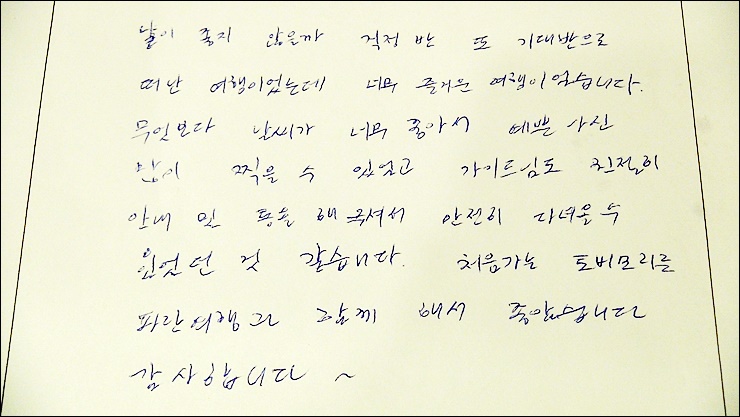 날이 좋지 않을까 걱정 반 또 기대반으로
떠난 여행이었는데 너무 즐거운 여행이었습니다.
무엇보다 날씨가 너무 좋아서 예쁜 사진
많이 찍을 수 있었고 가이드님도 친절히
안내 및 통솔 해 주셔서 안전히 다녀올 수
있었던 것 같습니다. 처음가는 토비모리를
파란여행과 함께 해서 좋았습니다
감사합니다 ~